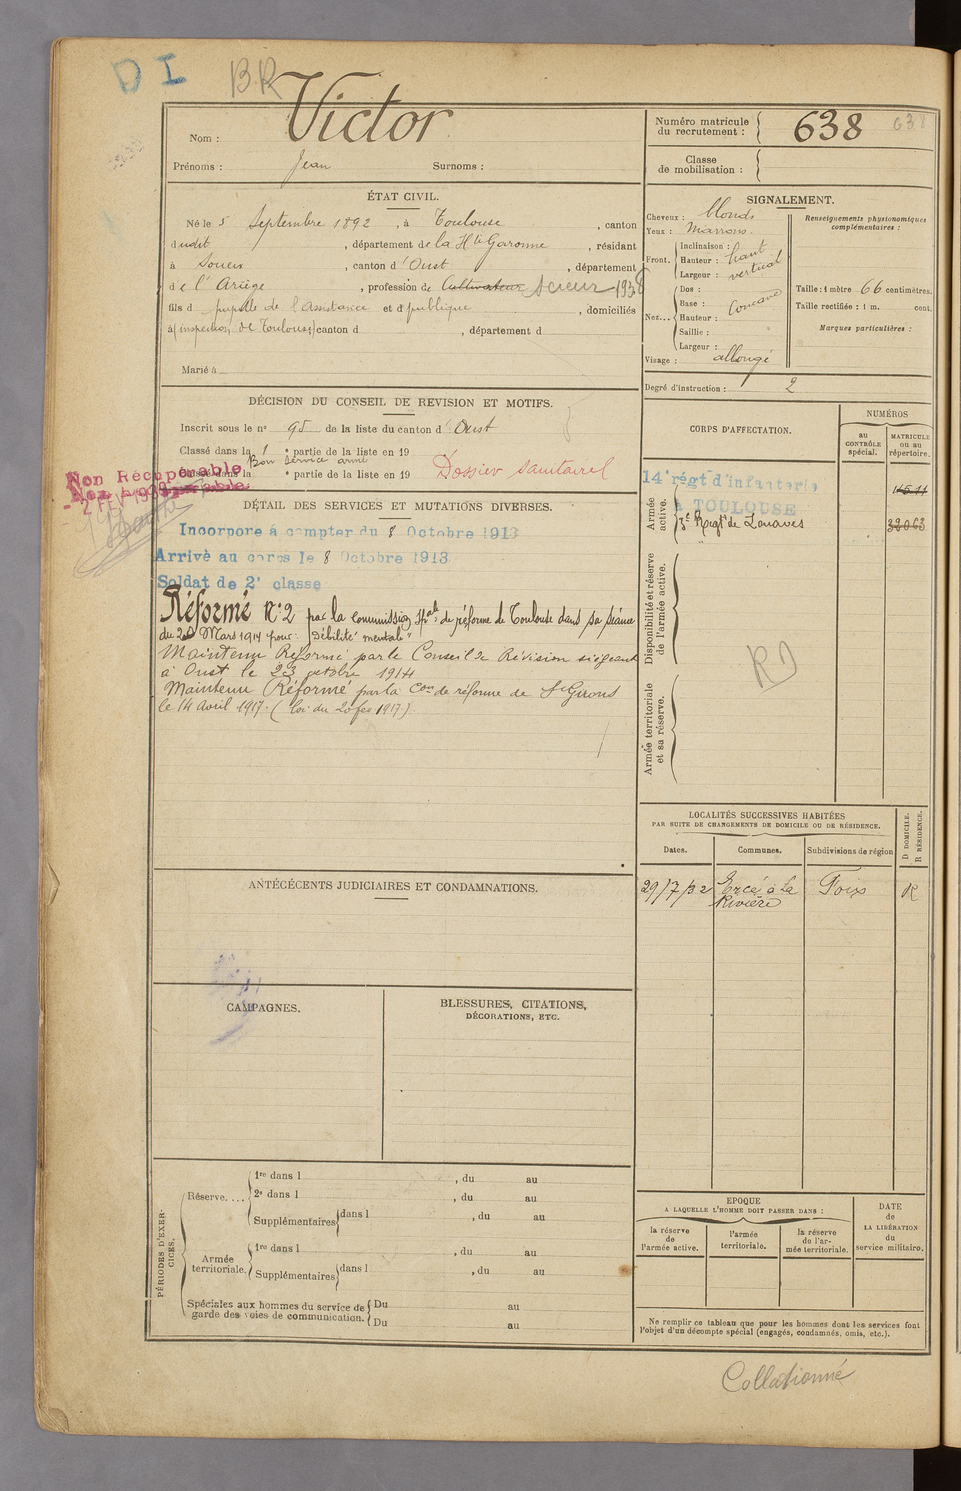 D I BR
Nom : Victor
Prénoms : Jean Surnoms :
Numéro matricule
du recrutement : 638 638
Classe
de mobilisation :
ÉTAT CIVIL.
Né le 5 Septembre 1892, à Toulouse, canton
dudit, département de la Hte Garonne, résidant
à Soueix, canton d'Oust, département
de l'Ariège, profession de Cultivateur Scieur 1938
fils d pupille de l'assistance et d publique, domiciliés
à (inspection de Toulouse) canton d, département d
Marié à
SIGNALEMENT.
Cheveux : blonds
Yeux : Marrons
Front. Inclinaison :
Hauteur : haut
Largeur : vertical
Nez... Dos :
Base : Concave
Hauteur :
Saillie :
Largeur :
Visage : allongé
Renseignements physionomiques
complémentaires :
Taille : 1 mètre 66 centimètres.
Taille rectifiée : 1 m. cent.
Marques particulières :
Degré d'instruction : 2
DÉCISION DU CONSEIL DE REVISION ET MOTIFS.
Inscrit sous le nº 95 de la liste du canton d'Oust
Classé dans la 1 e partie de la liste en 19
Bon service armé
Classé dans la e partie de la liste en 19 Dossier sanitaire
Non Récupérable
Non Récupérable
- 2 FEV
DÉTAIL DES SERVICES ET MUTATIONS DIVERSES.
Incorporé à compter du 8 Octobre 1913
Arrivé au corps le 8 Octobre 1913
Soldat de 2e classe
Réformé Nº2 par la commission spale de réforme de Toulouse dans sa séance
du 20 Mars 1914 pour : "Débilité mentale"
Maintenu Réformé par le Conseil de Révision siégeant
à Oust le 23 octobre 1914
Maintenu Réformé par la Con de réforme de St Girons
le 14 avril 1917. (Loi du 20 fév 1917).
CORPS D'AFFECTATION.
NUMÉROS
au
CONTRÔLE
spécial.
MATRICULE
ou au
répertoire.
Armée
active.
14e régt d'infanterie
à TOULOUSE
3e Regt de Zouaves 32063
Disponibilité et réserve
de l'armée active.
RD
Armée territoriale
et sa réserve.
LOCALITÉS SUCCESSIVES HABITÉES
PAR SUITE DE CHANGEMENTS DE DOMICILE OU DE RÉSIDENCE.
Dates.
Communes.
Subdivisions de région
D DOMICILE.
R RÉSIDENCE.
29/7/32 Ercé à La Foix R
Rivière
ANTÉCÉCENTS JUDICIAIRES ET CONDAMNATIONS.
CAMPAGNES.
BLESSURES, CITATIONS,
DÉCORATIONS, ETC.
PÉRIODES D'EXER-
CICES.
Réserve....
1re dans l , du au
2e dans l , du au
Supplémentaires dans l , du au
Armée
territoriale.
1re dans l , du au
Supplémentaires dans l , du au
Spéciales aux hommes du service de
garde des voies de communication.
Du au
Du au
EPOQUE
A LAQUELLE L'HOMME DOIT PASSER DANS :
la réserve
de
l'armée active.
l'armée
territoriale.
la réserve
de l'ar-
mée territoriale.
DATE
de
LA LIBÉRATION
du
service militaire.
Ne remplir ce tableau que pour les hommes dont les services font
l'objet d'un décompte spécial (engagés, condamnés, omis, etc.).
Collationné